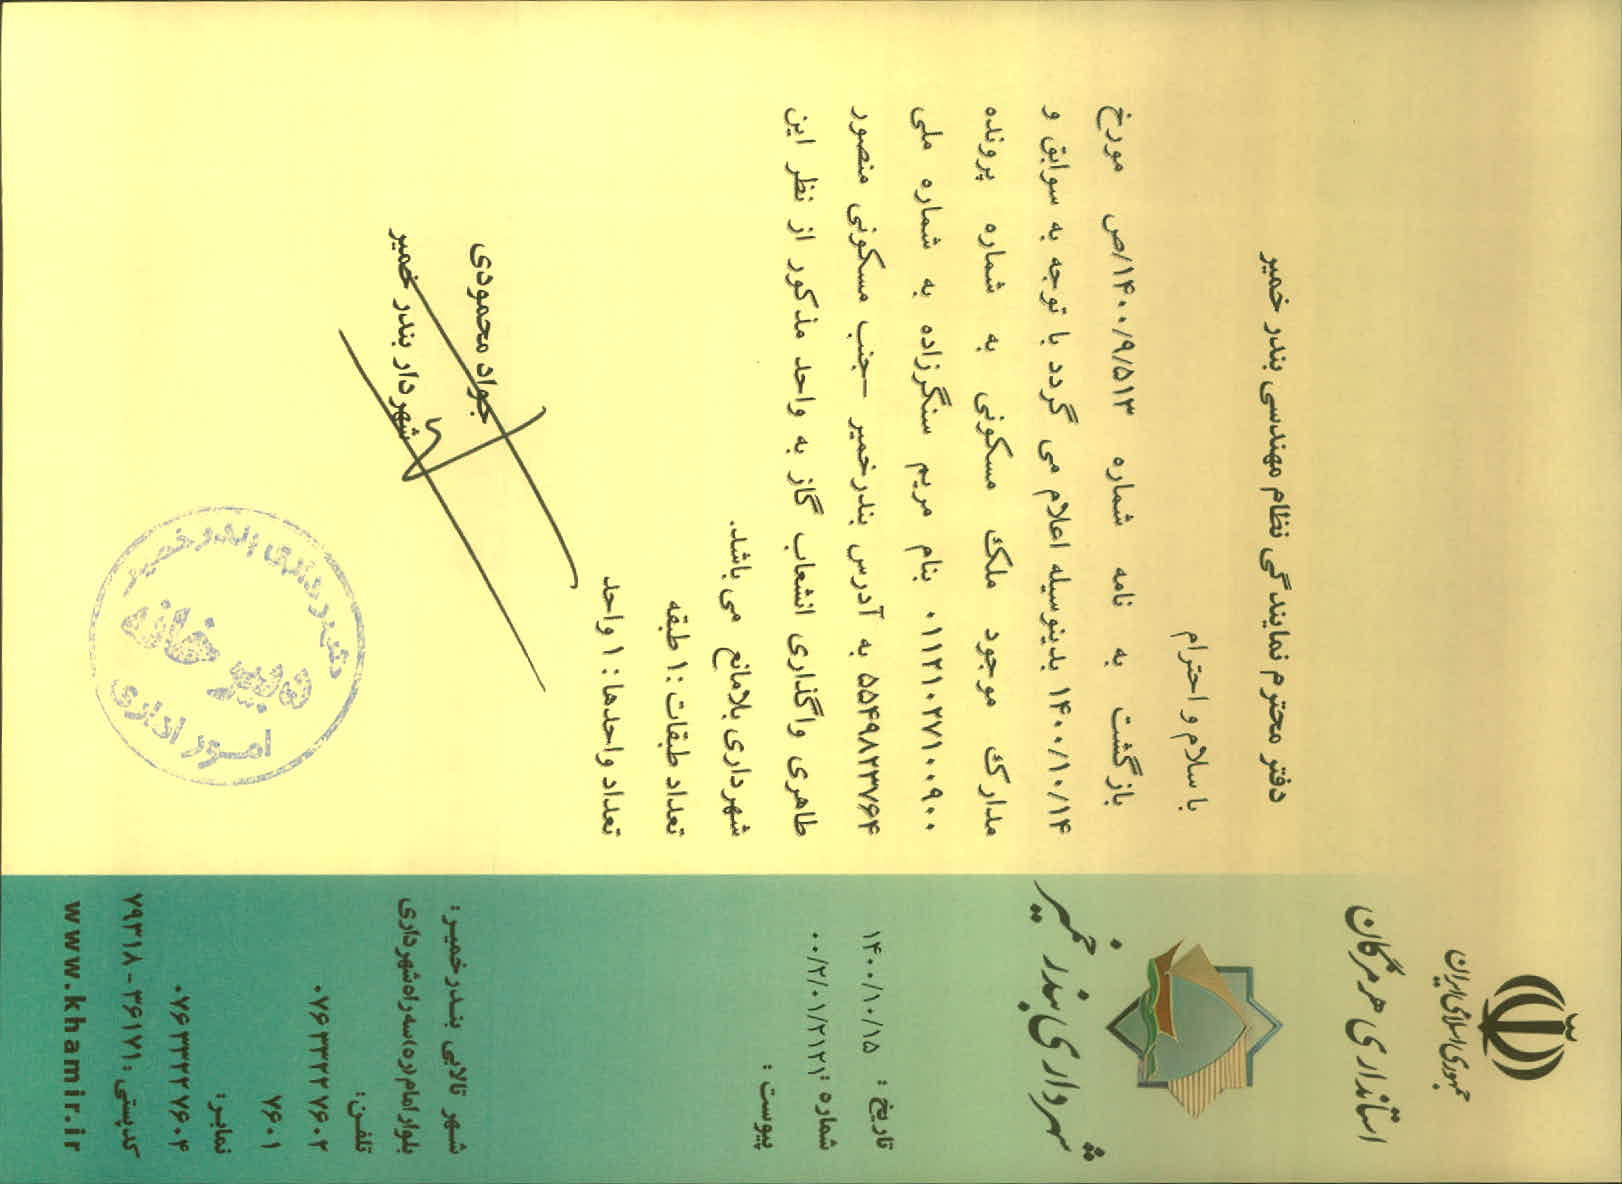 جمهوری اسلامی ایران
استانداری هرمزگان
شهرداری بندر خمیر
تاریخ : ۱۴۰۰/۱۰/۱۵
شماره : ۰۰/۲/۰۱/۲۱۲۱
پیوست :
دفتر محترم نمایندگی نظام مهندسی بندر خمیر
با سلام و احترام
بازگشت به نامه شماره ۱۴۰۰/۹/۵۱۳/ص مورخ
۱۴۰۰/۱۰/۱۴ بدینوسیله اعلام می گردد با توجه به سوابق و
مدارک موجود ملک مسکونی به شماره پرونده
۰۱۱۲۱۰۲۷۱۰۰۹۰۰ بنام مریم سنگرزاده به شماره ملی
۵۵۴۹۸۲۳۷۶۴ به آدرس بندرخمیر -جنب مسکونی منصور
طاهری واگذاری انشعاب گاز به واحد مذکور از نظر این
شهرداری بلامانع می باشد.
تعداد طبقات :۱ طبقه
تعداد واحدها : ۱ واحد
جواد محمودی
شهردار بندر خمیر
شهرداری بندر خمیر
دبیر خانه
امور اداری
شهر تالابی بندرخمیر :
بلوار امام (ره) سه راه شهرداری
تلفن:
۰۷۶۳۳۲۲۷۶۰۲
۷۶۰۱
نمابر:
۰۷۶۳۳۲۲۷۶۰۴
کدپستی : ۳۶۱۷۱ - ۷۹۳۱۸
www.khamir.ir